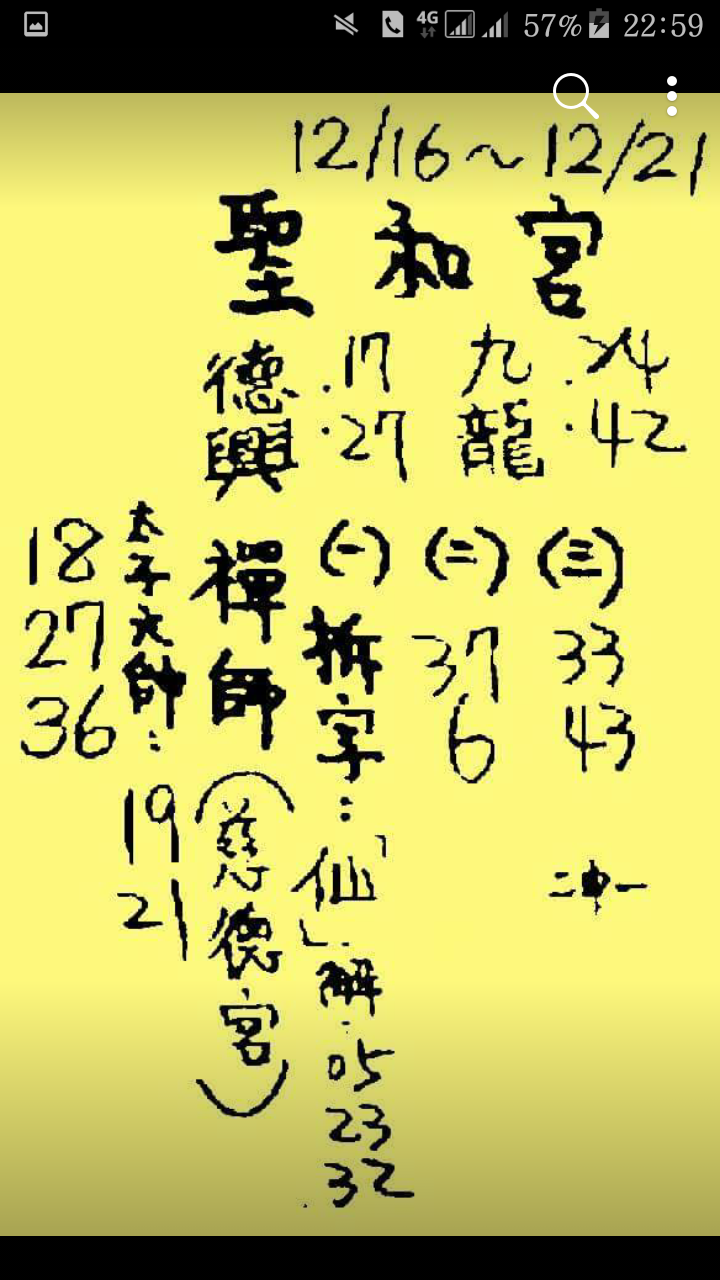 4G 57% 22:59
12/16～12/21
聖和宮
德興 .17 .27
九龍 .24 .42
(一) (二) (三)
拆字：「仙」.解.05 23 32
37 6
33 43
二中一
禪師（慈德宮）
太子大帥：19 21
18
27
36